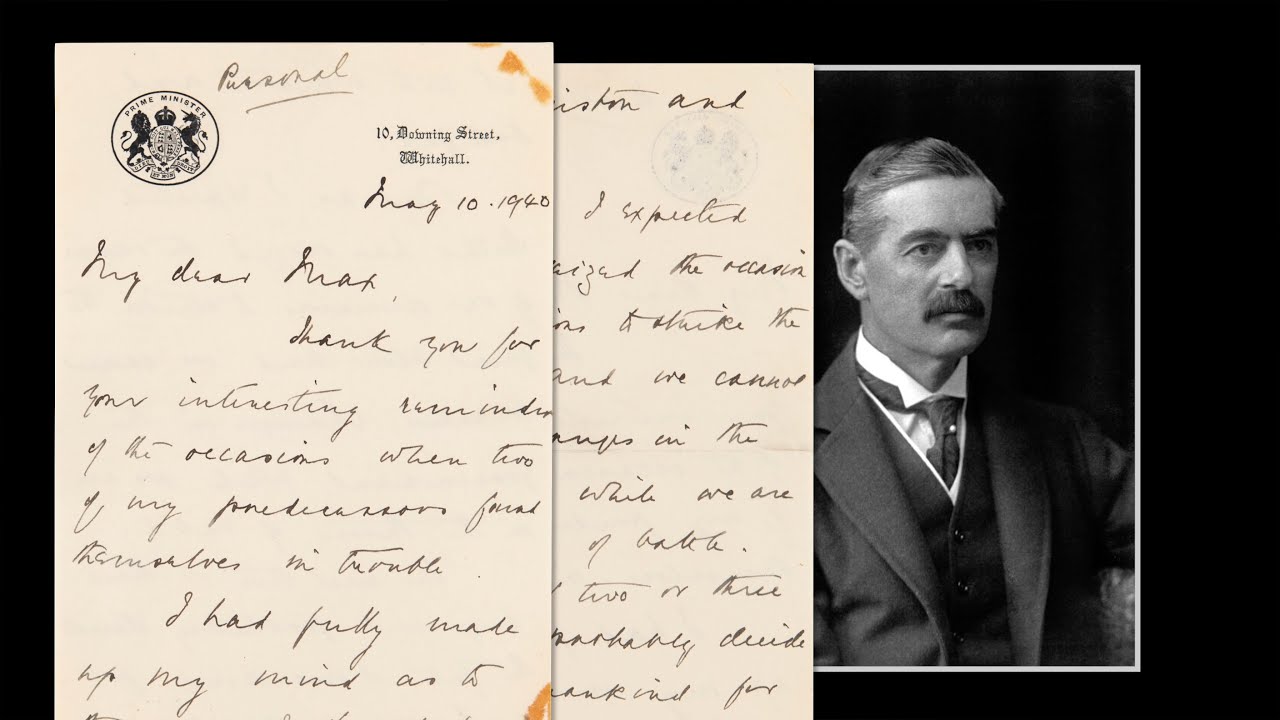 Personal
PRIME MINISTER
10, Downing Street,
Whitehall.
May 10. 1940
My dear Max,
Thank you for
your interesting reminder
of the occasions when two
of my predecessors found
themselves in trouble.
I had fully made
up my mind as to
and
I expected
the occasion
to strike the
and we cannot
in the
while we are
of battle.
two or three
probably decide
mankind for